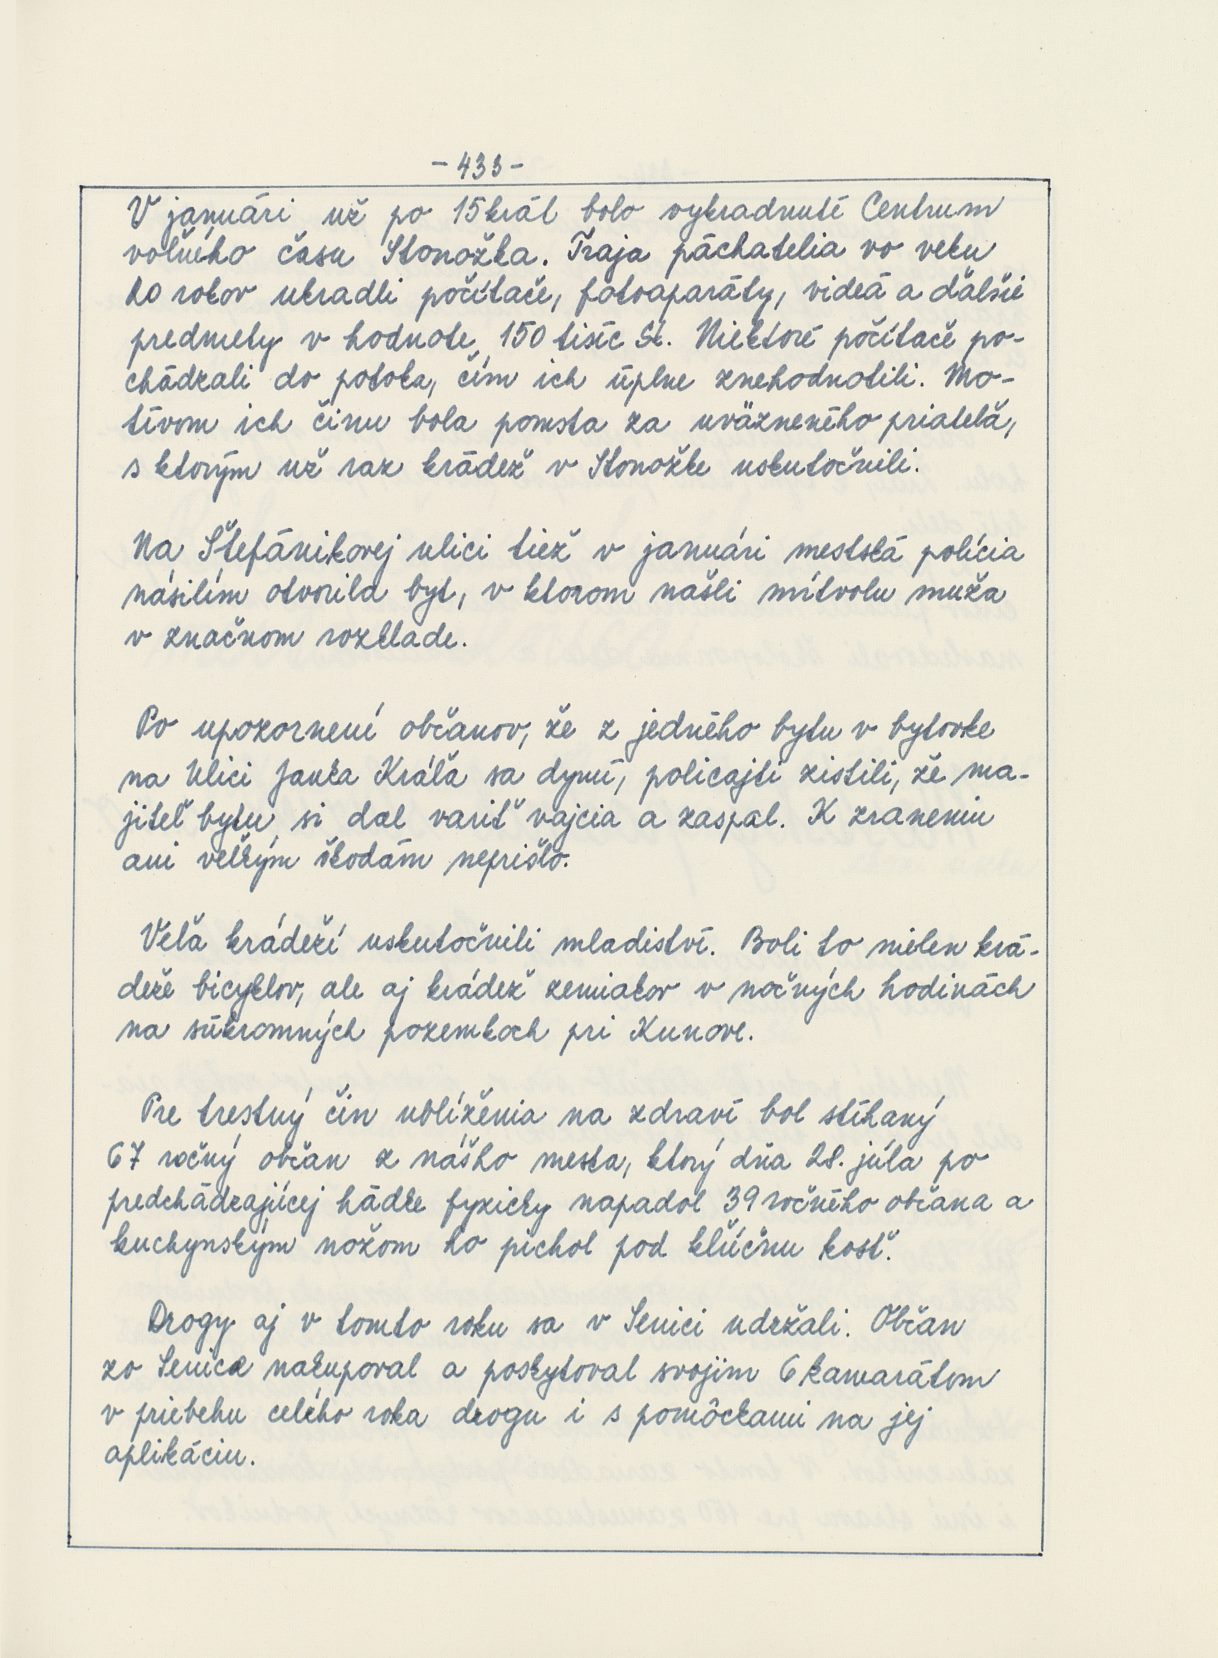 - 433 -
V januári už po 15krát bolo vykradnuté Centrum
voľného času Stonožka. Traja páchatelia vo veku
20 rokov ukradli počítače, fotoaparáty, videá a ďalšie
predmety v hodnote 150 tisíc Sk. Niektoré počítače po-
chádzali do potoka, čím ich úplne znehodnotili. Mo-
tívom ich činu bola pomsta za uväzneného priateľa,
s ktorým už raz krádež v Stonožke uskutočnili.
Na Štefánikovej ulici tiež v januári mestská polícia
násilím otvorila byt, v ktorom našli mŕtvolu muža
v značnom rozklade.
Po upozornení občanov, že z jedného bytu v bytovke
na Ulici Janka Kráľa sa dymí, policajti zistili, že ma-
jiteľ bytu si dal variť vajcia a zaspal. K zraneniu
ani veľkým škodám neprišlo.
Veľa krádeží uskutočnili mladiství. Boli to nielen krá-
deže bicyklov, ale aj krádež zemiakov v nočných hodinách
na súkromných pozemkoch pri Kunove.
Pre trestný čin ublíženia na zdraví bol stíhaný
67 ročný občan z nášho mesta, ktorý dňa 28. júla po
predchádzajúcej hádke fyzicky napadol 39 ročného občana a
kuchynským nožom ho pichol pod kľúčnu kosť.
Drogy aj v tomto roku sa v Senici udržali. Občan
zo Senice nakupoval a poskytoval svojim 6 kamarátom
v priebehu celého roka drogu i s pomôckami na jej
aplikáciu.